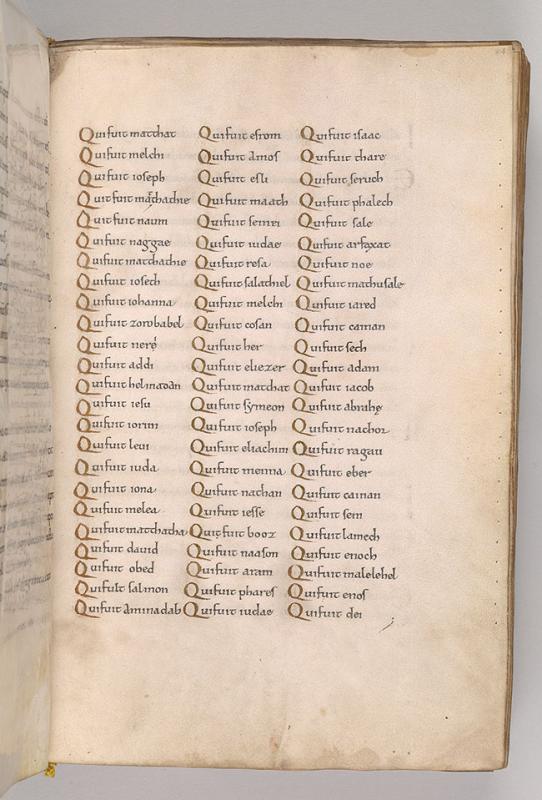 Qui fuit matthat
Qui fuit melchi
Qui fuit ioseph
Qui fuit mathathie
Qui fuit naum
Qui fuit naggae
Qui fuit matthathie
Qui fuit iosech
Qui fuit iohanna
Qui fuit zorobabel
Qui fuit neré
Qui fuit addi
Qui fuit helmadan
Qui fuit iesu
Qui fuit iorim
Qui fuit leui
Qui fuit iuda
Qui fuit iona
Qui fuit melea
Qui fuit matthatha
Qui fuit dauid
Qui fuit obed
Qui fuit salmon
Qui fuit aminadab
Qui fuit esrom
Qui fuit amos
Qui fuit esli
Qui fuit maath
Qui fuit semei
Qui fuit iudae
Qui fuit resa
Qui fuit salathiel
Qui fuit melchi
Qui fuit cosan
Qui fuit her
Qui fuit eliezer
Qui fuit matthat
Qui fuit symeon
Qui fuit ioseph
Qui fuit eliachim
Qui fuit menna
Qui fuit nathan
Qui fuit iesse
Qui fuit booz
Qui fuit naason
Qui fuit aram
Qui fuit phares
Qui fuit iudae
Qui fuit isaac
Qui fuit thare
Qui fuit seruch
Qui fuit phalech
Qui fuit sale
Qui fuit arfaxat
Qui fuit noe
Qui fuit mathusale
Qui fuit iared
Qui fuit cainan
Qui fuit seth
Qui fuit adam
Qui fuit iacob
Qui fuit abrahę
Qui fuit nachor
Qui fuit ragau
Qui fuit eber
Qui fuit cainan
Qui fuit sem
Qui fuit lamech
Qui fuit enoch
Qui fuit malelehel
Qui fuit enos
Qui fuit dei